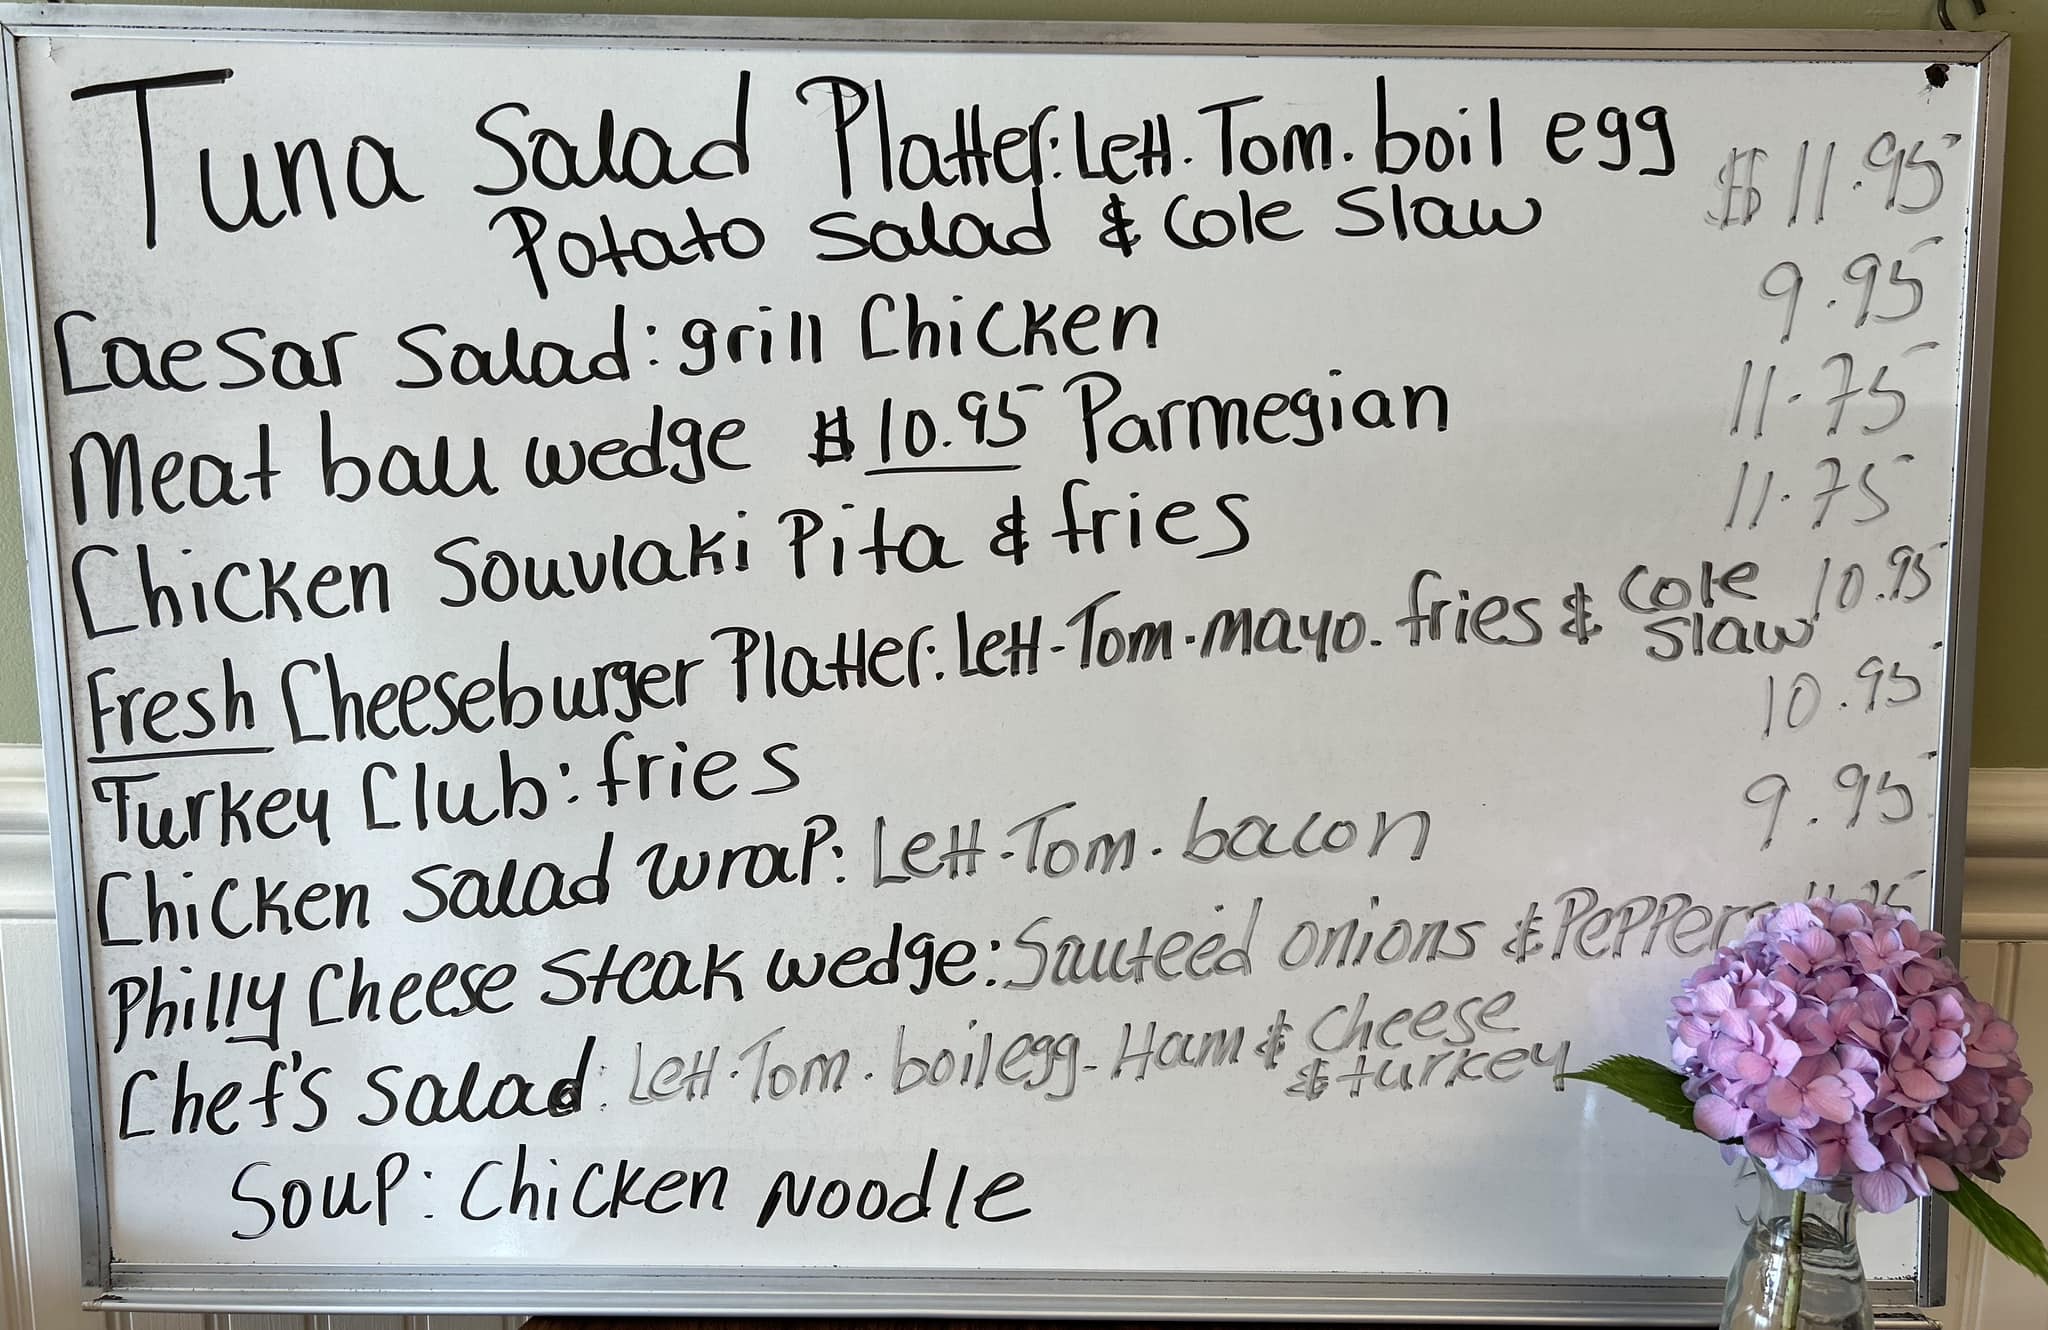 Tuna Salad Platter: Lett. Tom. boil egg $11.95
Potato Salad & Cole Slaw
Caesar Salad: grill Chicken 9.95
Meat ball wedge $10.95 Parmegian 11.75
Chicken Souvlaki Pita & fries 11.75
Fresh Cheeseburger Platter: Lett-Tom-mayo. fries & Cole Slaw 10.95
Turkey Club: fries 10.95
Chicken Salad wrap: Lett-Tom. bacon 9.95
Philly Cheese Steak wedge: Sauteed onions & Peppers
Chef's Salad: Lett-Tom. boil egg-Ham & Cheese
& turkey
Soup: Chicken Noodle